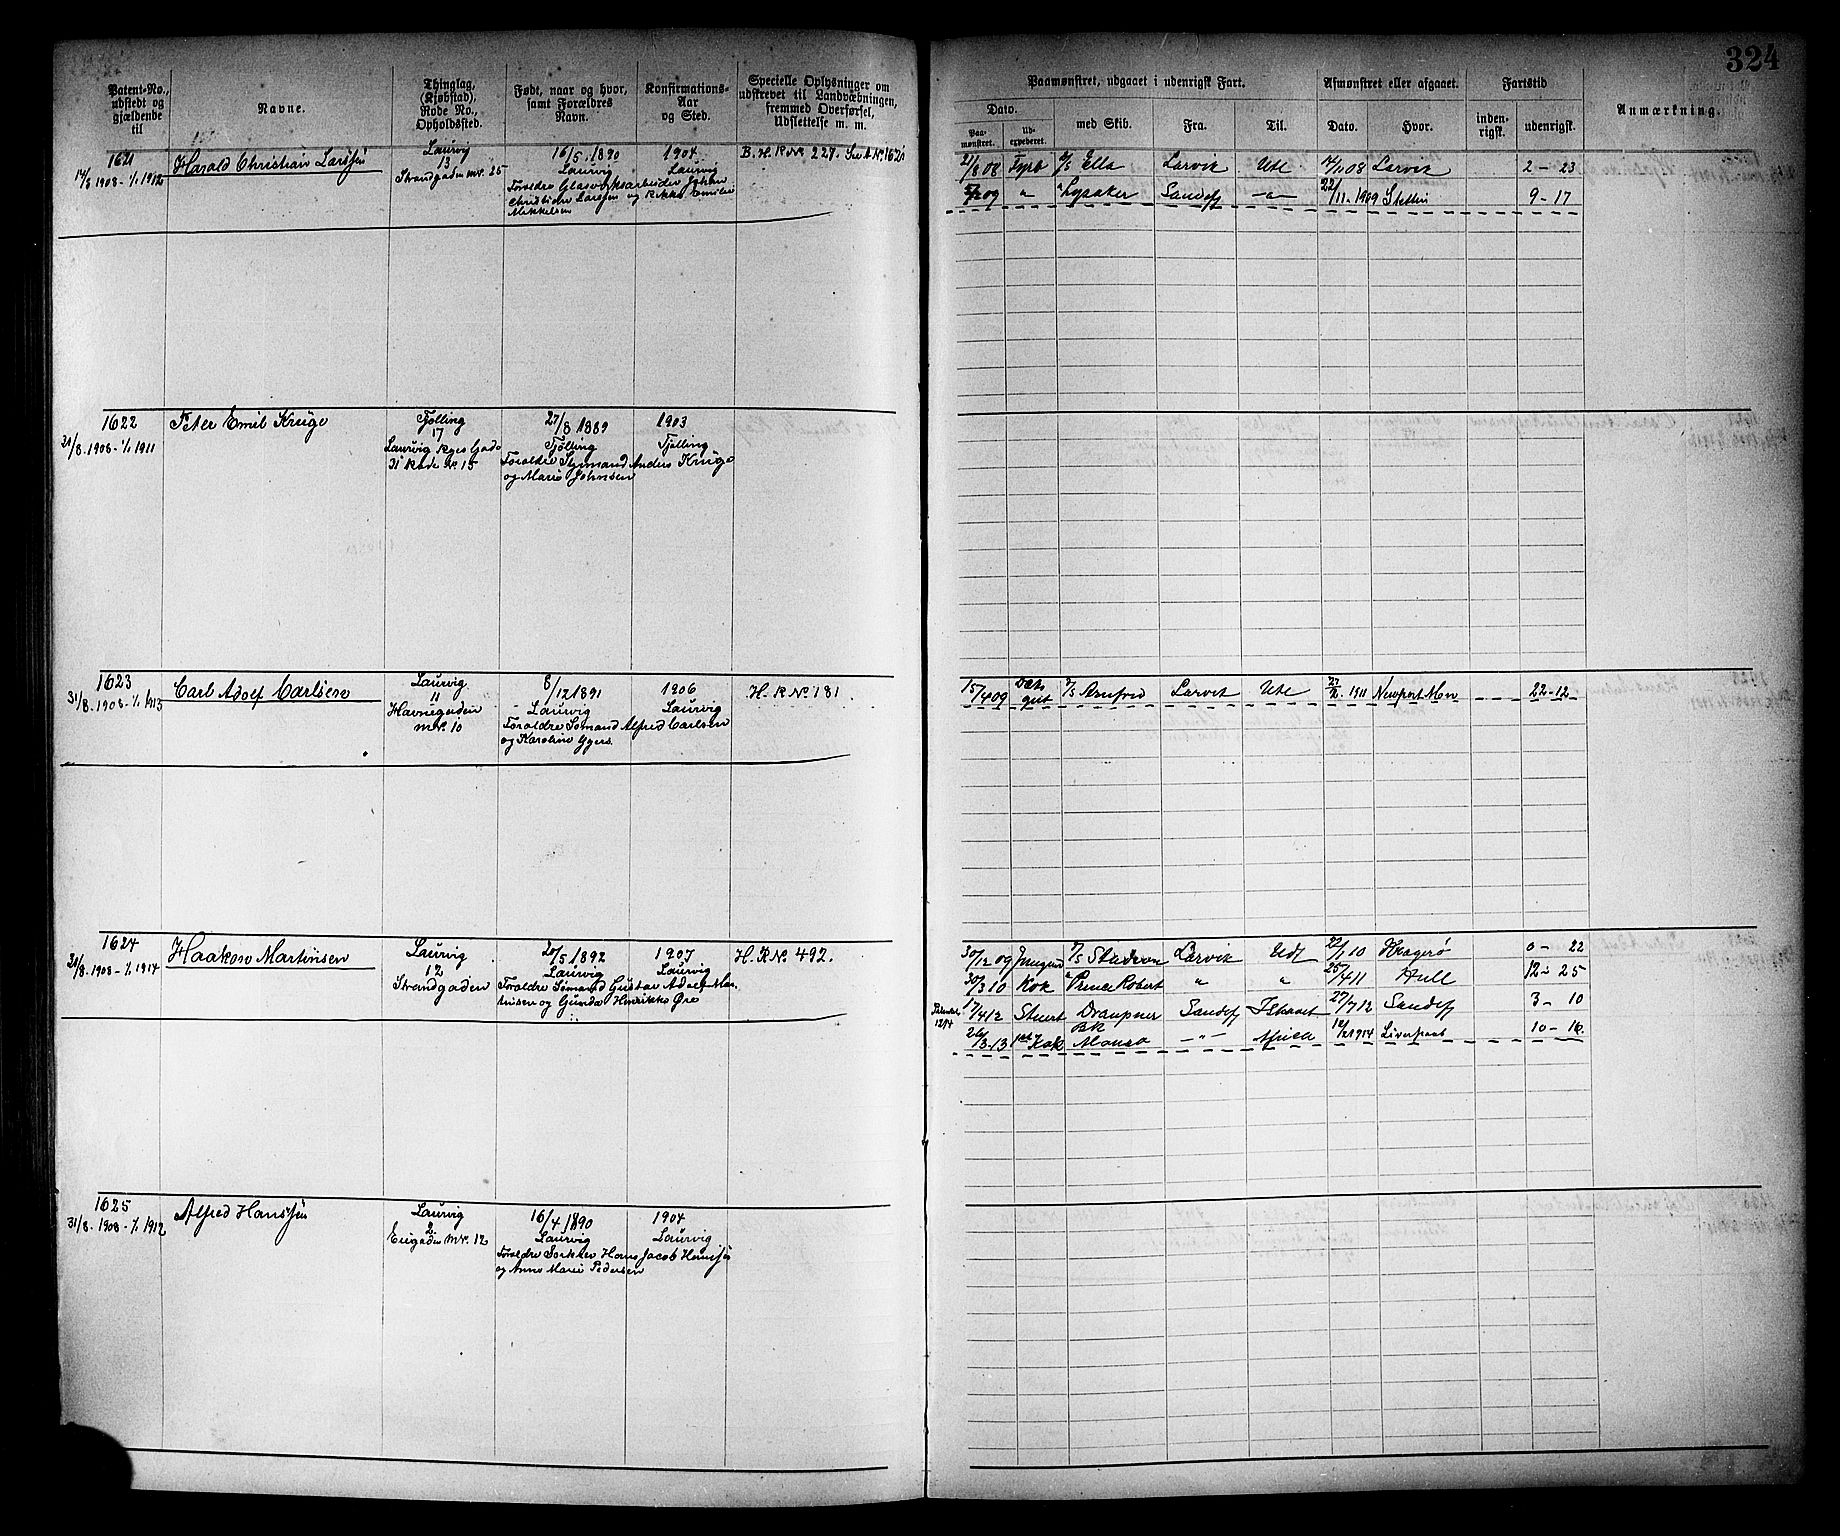 324
Patent-No., udstedt og gjældende til
Navne.
Thinglag, (Kjøbstad), Rode No., Opholdssted.
Født, naar og hvor, samt Forældres Navn.
Konfirmations-Aar og Sted.
Specielle Oplysninger om udskrevet til Landværbningen, fremmed Overførsel, Udslettelse m. m.
Paamønstret, udgaaet i udenrigsk Fart.
Dato.
Paa-mønstret.
med Skib.
Fra.
Til.
Afmønstret eller afgaaet.
Dato.
Hvor.
Fartstid
inden-rigsk.
udenrigsk.
Anmærkning.
1621
14/8 1908 - 1/1 1912
Harald Christian Larssen
Laurvig
13
Strandgaden nr. 25
16/5 1890
Laurvig
1904
Laurvig
Christian Larssen og Rikke Emilie
Mikkelsen
B. H. R. No 227.
21/8 08 Fyrb Ella Larvik Ute 14/11 08 Larvik 2 - 23
09 " Lysaker Sandefj - " - 22/11 - 1909 Stettin 9 - 17
1622
31/8. 1908 - 1/1 1911
Peter Emil Krüge
Tjølling
17
27/8 1889
Tjølling
Forældre Sømand Anders Krüge
og Marie Johnsen
1903
Tjølling
1623
31/8. 1908 - 1/1 1913
Carl Adolf Carlsen
Laurvig
11
Havnegaden
nr. 10
8/12 1891
Laurvig
Forældre Sømand Alfred Carlsen
1906
Laurvig
H. R. No 181.
15/4 09 Larvik Ute 1911 Newport Mon 22 - 12
1624
31/8. 1908 - 1/1 1914
Haakon Martinsen
Laurvig
12
Strandgaden
20/5 1892
Laurvig
Forældre Sømand Gustav Adolf Mar-
tinsen og Gunda Henrikke
1907
Laurvig
H. R. No. 492.
30/12 09 Larvik 22/1 10 Kragerø 0 - 22
30/3 10 Kok Prince Robert " " 25/4 11 Hull 12 - 25
17/4 12 Stuert Draupner Sandefj 27/7 12 Sandefj 3 - 10
1294
26/3 - 13 1ste Kok Bk Alonso - " - Africa 12/2 1914 Liverpool 10 - 16
1625
31/8. 1908 - 1/1 1912
Alfred Hanssen
Laurvig
2
nr. 12
16/4 1890
Laurvig
Hans Jacob Hanssen
og Anne Marie Pedersen
1904
Laurvig